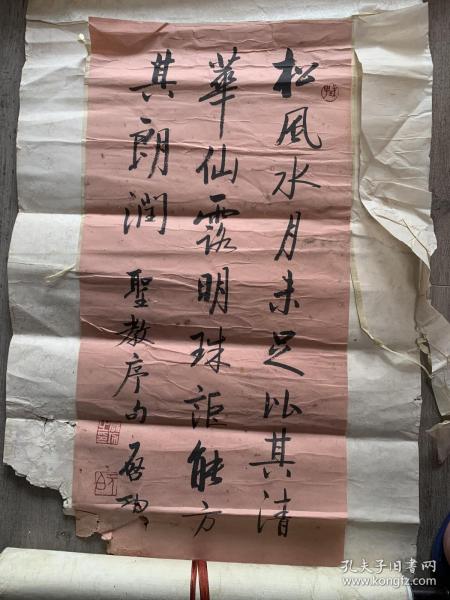 松風水月未足比其清
華仙露明珠詎能方
其朗潤 聖教序句 啓功
孔夫子旧书网
www.kongfz.com